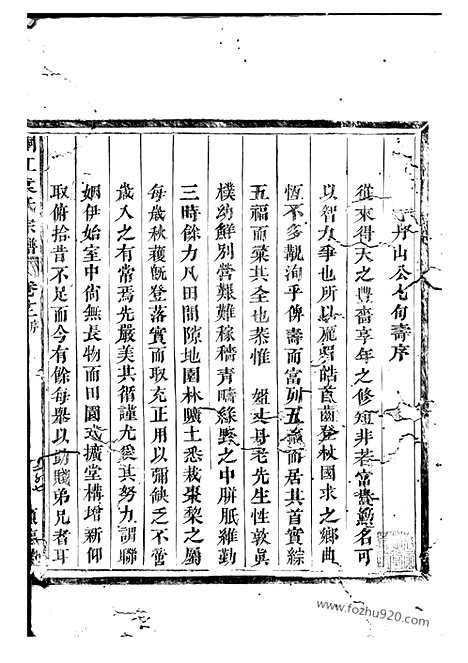 丹山公七旬壽序
從來得天之豊嗇享年之修短非若富貴勳名可
以智力爭也所以龐眉皓首齒登杖國求之鄉曲
恆不多覯洵乎俦壽而富列五義而居其首實綜
五福而葉其全也恭惟 姻丈丹老先生性敦眞
樸幼鮮別營艱難稼穡青疇綠野之中胼胝維勤
三時餘力凡田間隙地園林曠土悉栽棗梨之屬
每歲秋穫旣登落實而取充正用以彌缺乏不啻
歲入之有常焉先嚴美其循謹尤爰其努力謂聯
姻伊始室中尙無長物而田園式擴堂構增新仰
取俯拾昔不足而今有餘每舉以助賤弟兄者耳
江 氏宗譜 卷十二 序
www.fozhu920.com